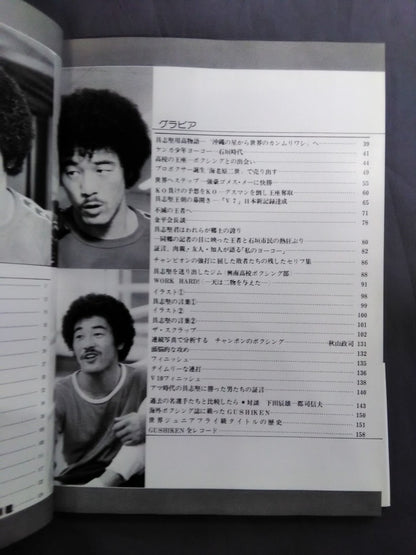 グラビア
具志堅用高物語─「沖縄の星から世界のカンムリワシ」へ 39
ケンカ少年ヨーコー─石垣時代 41
高校の王座─ボクシングとの出会い 44
プロボクサー誕生「海老原二世」で売り出す 49
世界へステップ─強豪ゴメス・メーに快勝 55
KO負けの予想をKO─グスマンを倒し王座奪取 60
具志堅王朝の幕開き─「V7」日本新記録達成 65
不滅の王者へ 71
金平会長談 78
具志堅君はわれらが郷土の誇り
─同郷の記者の目に映った王者と石垣市民の熱狂ぶり 80
証言、肉親・友人・知人が語る「私のヨーコー」 82
チャンピオンの強打に屈した敗者たちの残したセリフ集 86
具志堅を送り出したジム(興南高校ボクシング部) 88
WORK HARD!(─天は二物を与えた─) 91
イラスト① 98
具志堅の言葉① 99
イラスト② 100
具志堅の言葉② 101
ザ・スクラップ 102
連続写真で分析する チャンポンのボクシング 秋山政司 131
頭脳的な攻め 132
フィニッシュ 135
タイムリーな連打 136
V10フィニッシュ 138
アマ時代の具志堅に勝った男たちの証言 140
過去の名選手たちと比較したら★対談 下田辰雄─郡司信夫 143
海外ボクシング誌に載ったGUSHIKEN 150
世界ジュニアフライ級タイトルの歴史 151
GUSHIKEN全レコード 158